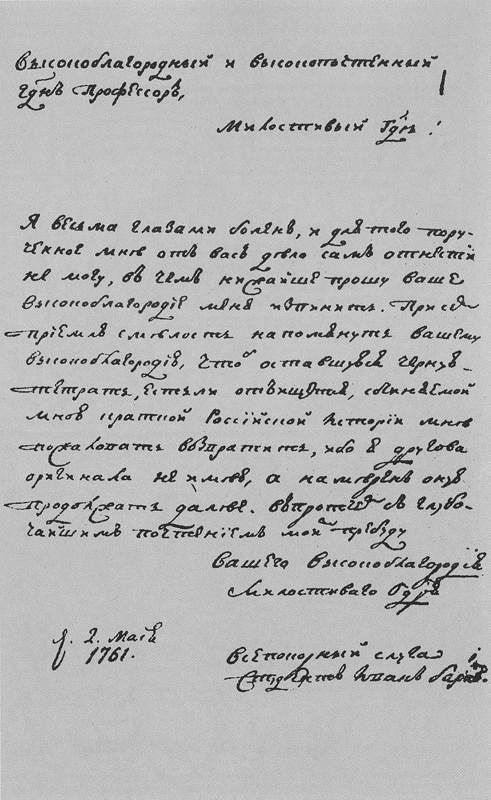 Высокоблагородный и высокопочтенный
гднъ Профессоръ,
Милостивый Гднь!
Я весьма глазами боленъ, и для того пору-
ченное мнѣ отъ васъ дѣло самъ отнести
не могу, въ чемъ нижайше прошу ваше
высокоблагородїе меня извинить. При семъ
прїемлю смѣлость напомянуть вашему
высокоблагородїю, что оставшуюся черную
тетрать, естьли отыщется, сочиняемой
мною краткой Россїйской Исторїи мнѣ
пожаловать возвратить, ибо я другова
оригинала не имѣю, а намѣренъ оную
продолжать далѣе. Впротчемъ съ глубо-
чайшимъ почтенїемъ пребуду
Вашего Высокоблагородїя
Милостиваго Гдря
2. Маїя
1761.
всепокорный слуга
Студентъ Иванъ Барковъ.